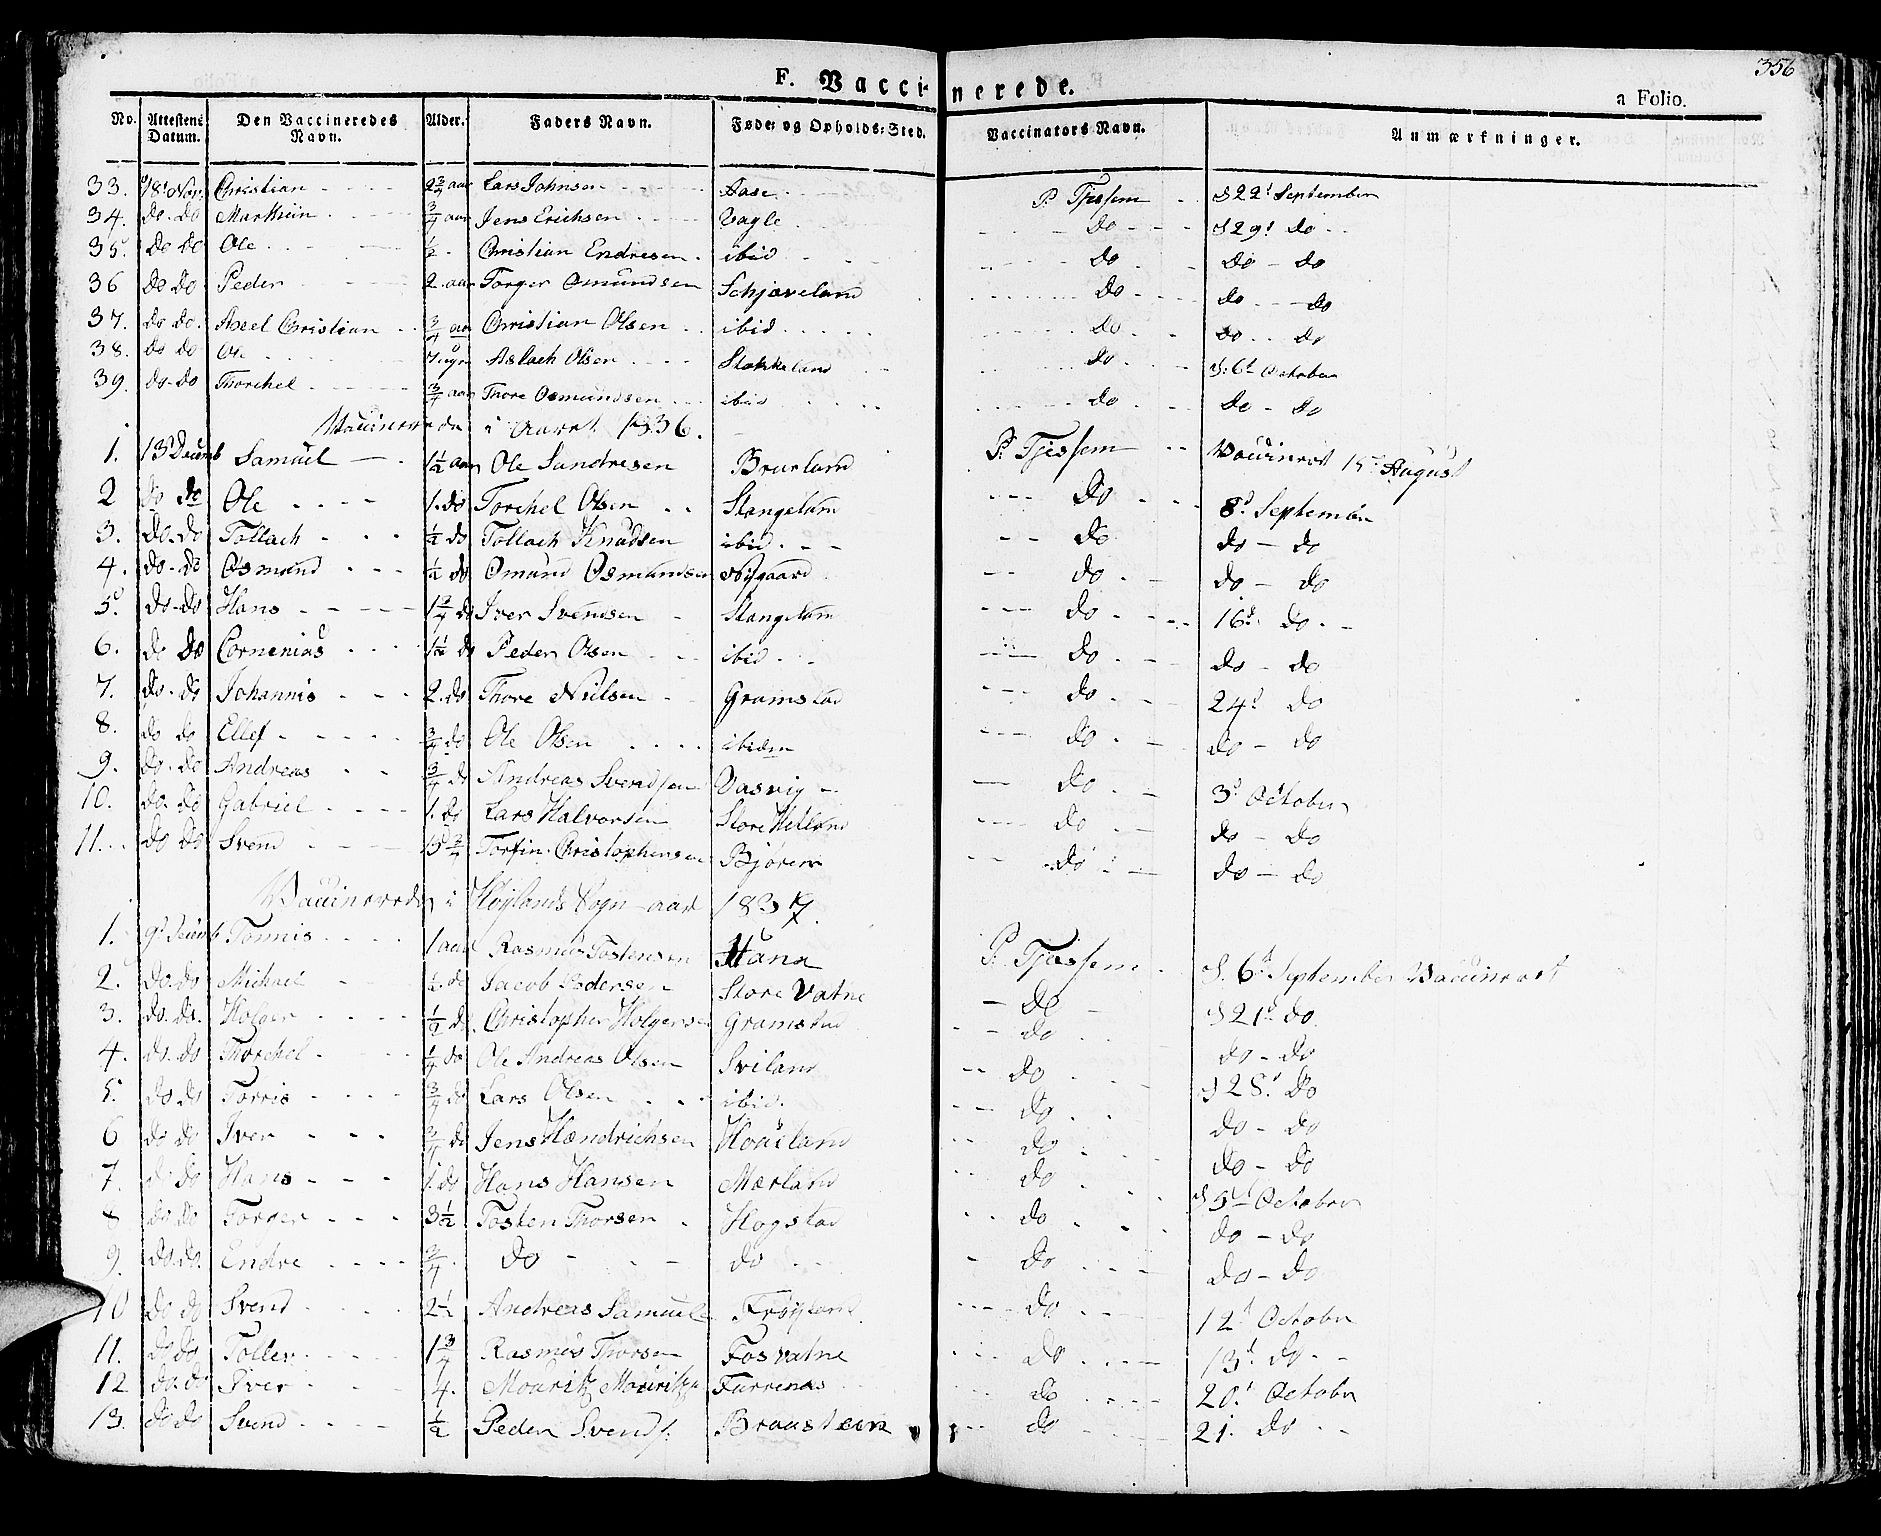 356
F. Vaccinerede.
a Folio.
No. Attestens Datum. Den Vaccineredes Navn. Alder. Faders Navn. Føde og Opholds-Sted. Vaccinators Navn. Anmærkninger.
33. 18d Nov. Christian 2 3/4 aar Lars Johnsen Aase P. Tjessem d 22d September
34. do. do Marthiin 3/4 aar Jens Erichsen Vagle do d 29d do
35. do do Ole 1/2 Christian Endresen ibid do do - do
36 do do Peder 2 aar Torger Omundsen Schjæveland do do - do
37. do do. Axel Christian 3/4 aar Christian Olsen ibid do do do
38. do do Ole 7. Aslach Olsen Stokkeland do d. 6d October
39. do. do Thorchel 3/4 aar Thore Osmundsen ibid do do - do
Vaccinerede i Aaret 1836.
1. 13d Decemb Samuel 1 1/2 aar Ole Sundresen Bruland P. Tjessem Vaccineret 15d August
2 do do Ole 1. do Torchel Olsen Stangeland do 8d September
3. do. do Tollach 1/2 do Tollach Knudsen ibid do do - do
4. do. do Osmund 1/2 do Omund Osmundsen Nygaard do do - do
5. do. do Hans 1 3/4 do Iver Svendsen Stangeland do 16d do
6. do do Cornenius 1 1/2 do Peder Olsen ibid do do - do
7. do. do Johannis 2. do Thore Nielsen Gramstad do 24d do
8. do do Ellef 3/4 do Ole Olsen ibidem do do - do
9. do. do Andreas 3/4 do Andreas Svendsen Vasvig do 3d October
10. do. do Gabriel 1. do Lars Halvorsen Store Hetland do do - do
11. do do Svend 3/4 Torfin Christophersen Bjørem do do - do
Vaccinerede i Høylands Sogn aar 1837.
1. 9d Decemb Tonnis 1 aar Rasmus Tostensen Hana P. Tjessem d. 6d September Vaccineret
2. do. do Michael 1/2. do Jacob Pedersen Store Vatne do d 21d do
3. do. do. Holger 1/2 do Christopher Holgersen Gramstad do do - do
4. do. do Thorchel 1/4 do Ole Andreas Olsen Sviland do d 28d do
5. do do Torris 3/4 do Lars Olsen ibid. do do - do
6 do do Iver 3/4 do Jens Hændrichsen Hoveland do do - do
7. do do Hans 1. do Hans Hansen Mæland do d 5d October
8 do do Torger 3 1/2 Tosten Thorsen Hogstad do do - do
9. do. do. Endre 3/4 do do do do - do
10 do do Svend 2 1/2 Andreas Samuels Frøyland do 12d October
11. do do Toller 1 3/4 Rasmus Thorsen Fosvatne do 13d do
12 do. do Iver 4. Mouritz Mouritzn Furrenæs do 20d October
13. do do Svend 1/2 Peder Svends. Braasteen do 21. do